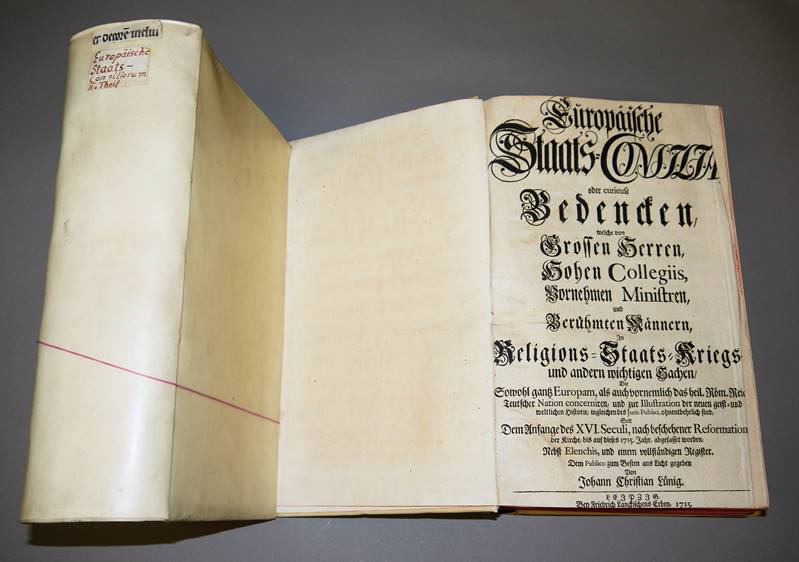 Europäische
Staats-
Consiliorum
II. Theil
Europäische
Staats-CONSILIA
oder curieuse
Bedencken,
welche von
Grossen Herren,
Hohen Collegiis,
Vornehmen Ministren,
und
Berühmten Männern,
In
Religions-Staats-Kriegs-
und andern wichtigen Sachen/
Die
Sowohl gantz Europam, als auch vornemlich das heil. Röm. Reich
Teutscher Nation concerniren, und zur Illustration der neuen geist- und
weltlichen Historie, ingleichen des Juris Publici, ohnentbehrlich sind,
Seit
Dem Anfange des XVI. Seculi, nach beschehener Reformation
der Kirche, bis auf dieses 1715. Jahr, abgefasset worden,
Nebst Elenchis, und einem vollständigen Register.
Dem Publico zum Besten ans Licht gegeben
Von
Johann Christian Lünig.
LEIPZIG.
Bey Friedrich Lanckischens Erben, 1715.